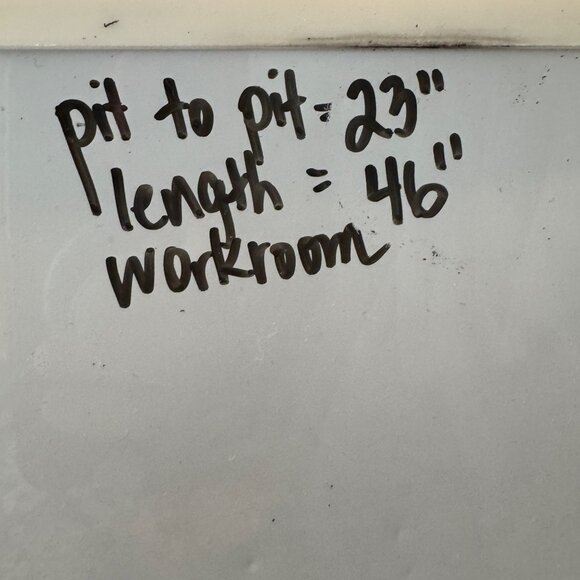 pit to pit = 23"
length = 46"
workroom